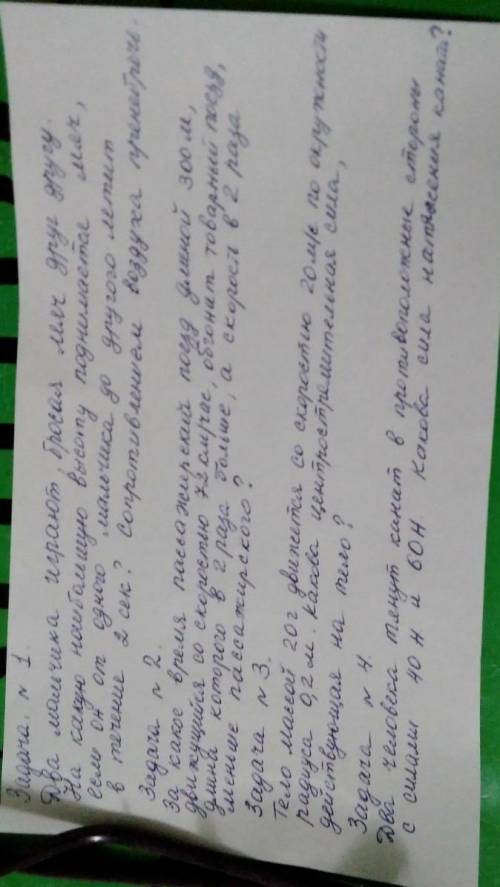 Задача. N 1.
Два мальчика играют, бросая мяч друг другу.
На какую наибольшую высоту поднимается мяч,
если он от одного мальчика до другого летит
в течение 2 сек? Сопротивлением воздуха пренебречь.
Задача N 2.
За какое время пассажирский поезд длиной 300 м,
движущийся со скоростью 72 км/час, обгонит товарный поезд,
длина которого в 2 раза больше, а скорость в 2 раза
меньше пассажирского?
Задача N 3.
Тело массой 20 г движется со скоростью 20 м/с по окружности
радиуса 0,2 м. Какова центростремительная сила,
действующая на тело?
Задача N 4.
Два человека тянут канат в противоположные стороны
с силами 40 Н и 60 Н. Какова сила натяжения каната?